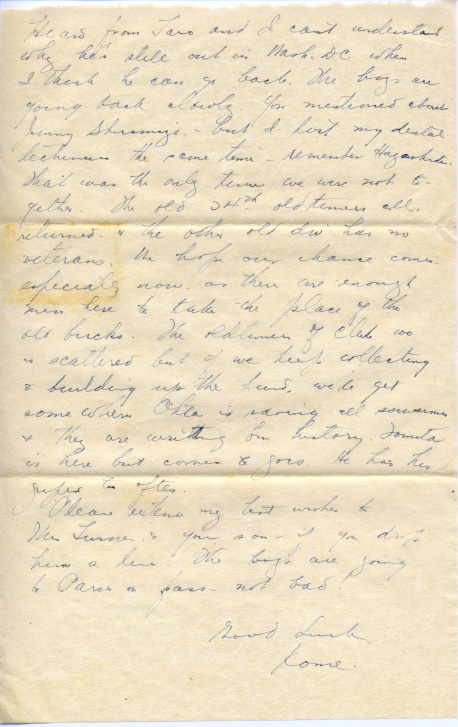 Heard from Taro and I can't understand
why he's still out in Wash. DC. when
I think he can go back. The boys are
going back slowly. You mentioned about
Jimmy - But I lost my dental
technician the same time - remember
That was the only time we were not to-
gether. The old 34th old timers all
returned - & the other old div has no
veterans. We hope our chance comes -
especially now - as there are enough
men here to take the place of the
old bucks. The oldtimers of Club 100
is scattered but if we keep collecting
& building up the fund, we'll get
some where. Ohta is saving all souvenirs
& they are writting our history.
is here but comes & goes. He has his
gripes too often.
Please extend my best wishes to
Mrs Turner & your son - if you drop
him a line. The boys are going
to Paris on pass - not bad
Good Luck
Kome.